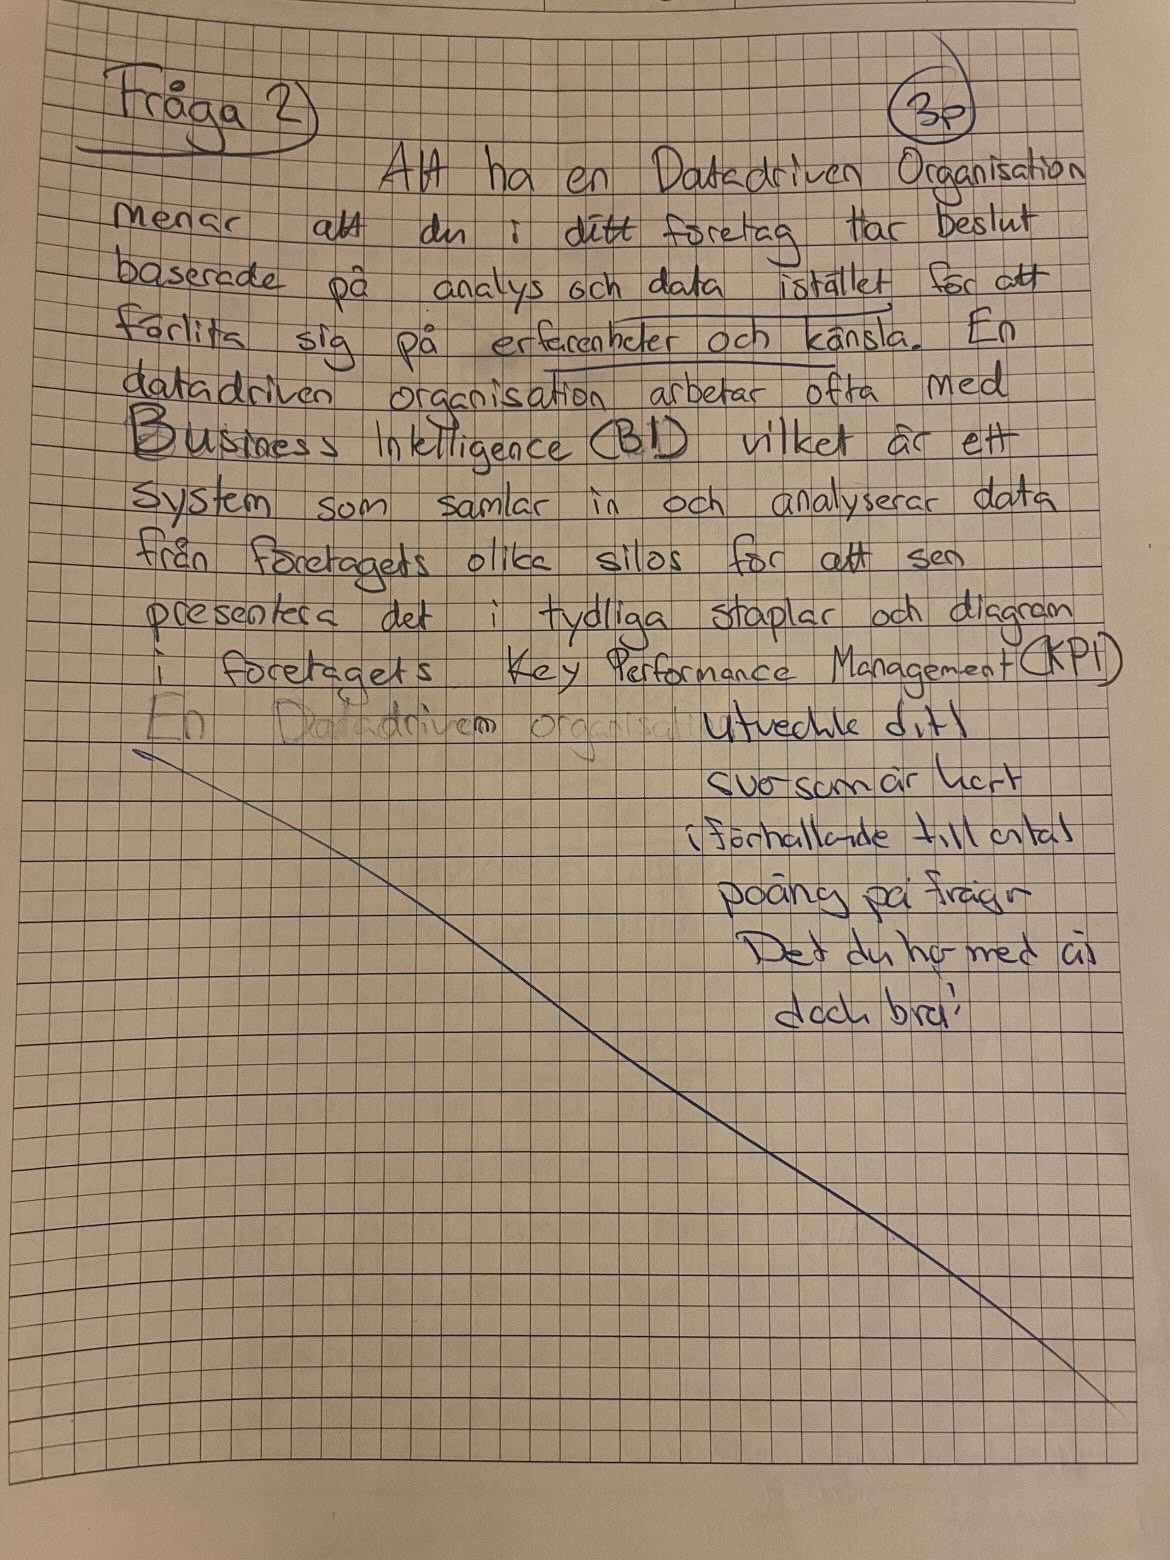 Fråga 2)
3p
Att ha en Datadriven Organisation
menar att du i ditt företag tar beslut
baserade på analys och data istället för att
förlita sig på erfarenheter och känsla. En
datadriven organisation arbetar ofta med
Business Intelligence (BI) vilket är ett
system som samlar in och analyserar data
från företagets olika silos för att sen
presentera det i tydliga staplar och diagram
i företagets Key Performance Management (KPI)
En Datadriven organisat
Utveckla ditt
svar som är kort
i förhållande till antal
poäng på frågan
Det du har med är
dock bra!